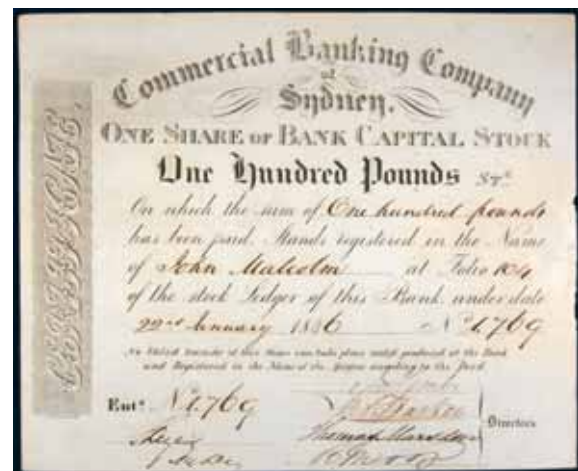 Commercial Banking Company
of
Sydney.
ONE SHARE OF BANK CAPITAL STOCK
One Hundred Pounds STG
On which the sum of One hundred pounds
has been paid. Stands registered in the Name
of John Malcolm at Folio 104
of the stock Ledger of this Bank under date
22nd January 1836 No 1,769
No United transfer of this Share can take place until produced at the Bank
and Registered in the Name of the Person acquiring to the Deed
Entd. No 1,769
Directors
Thomas